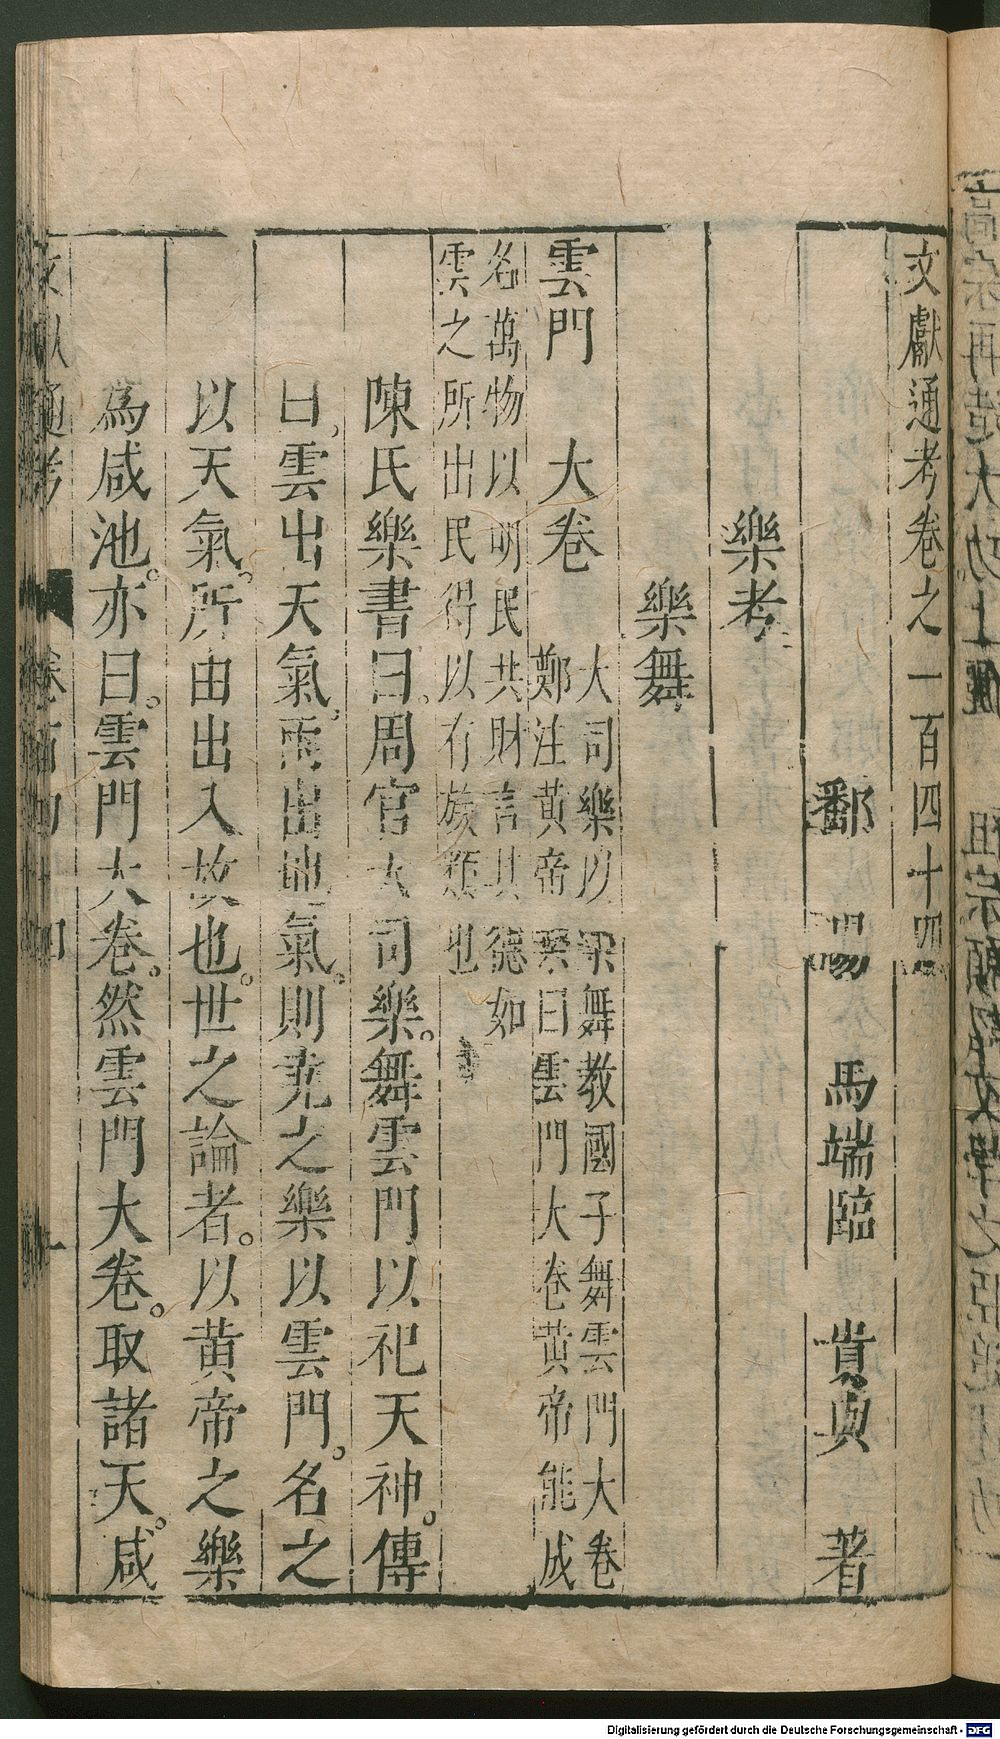 文獻通考卷之一百四十四
鄱陽馬端臨貴與著
樂考
樂舞
雲門 大卷 大司樂以樂舞教國子舞雲門大卷
鄭注黄帝樂曰雲門大卷黄帝能成
名萬物以明民共財言其德如
雲之所出民得以有族類也
陳氏樂書曰。周官大司樂。舞雲門以祀天神。傳
曰。雲出天氣。雨出地氣。則尭之樂以雲門。名之
以天氣。所由出入故也。世之論者。以黄帝之樂
為咸池。亦曰。雲門大卷。然雲門大卷。取諸天。咸
文獻通考 卷百四十四 一
Digitalisierung gefördert durch die Deutsche Forschungsgemeinschaft - DFG